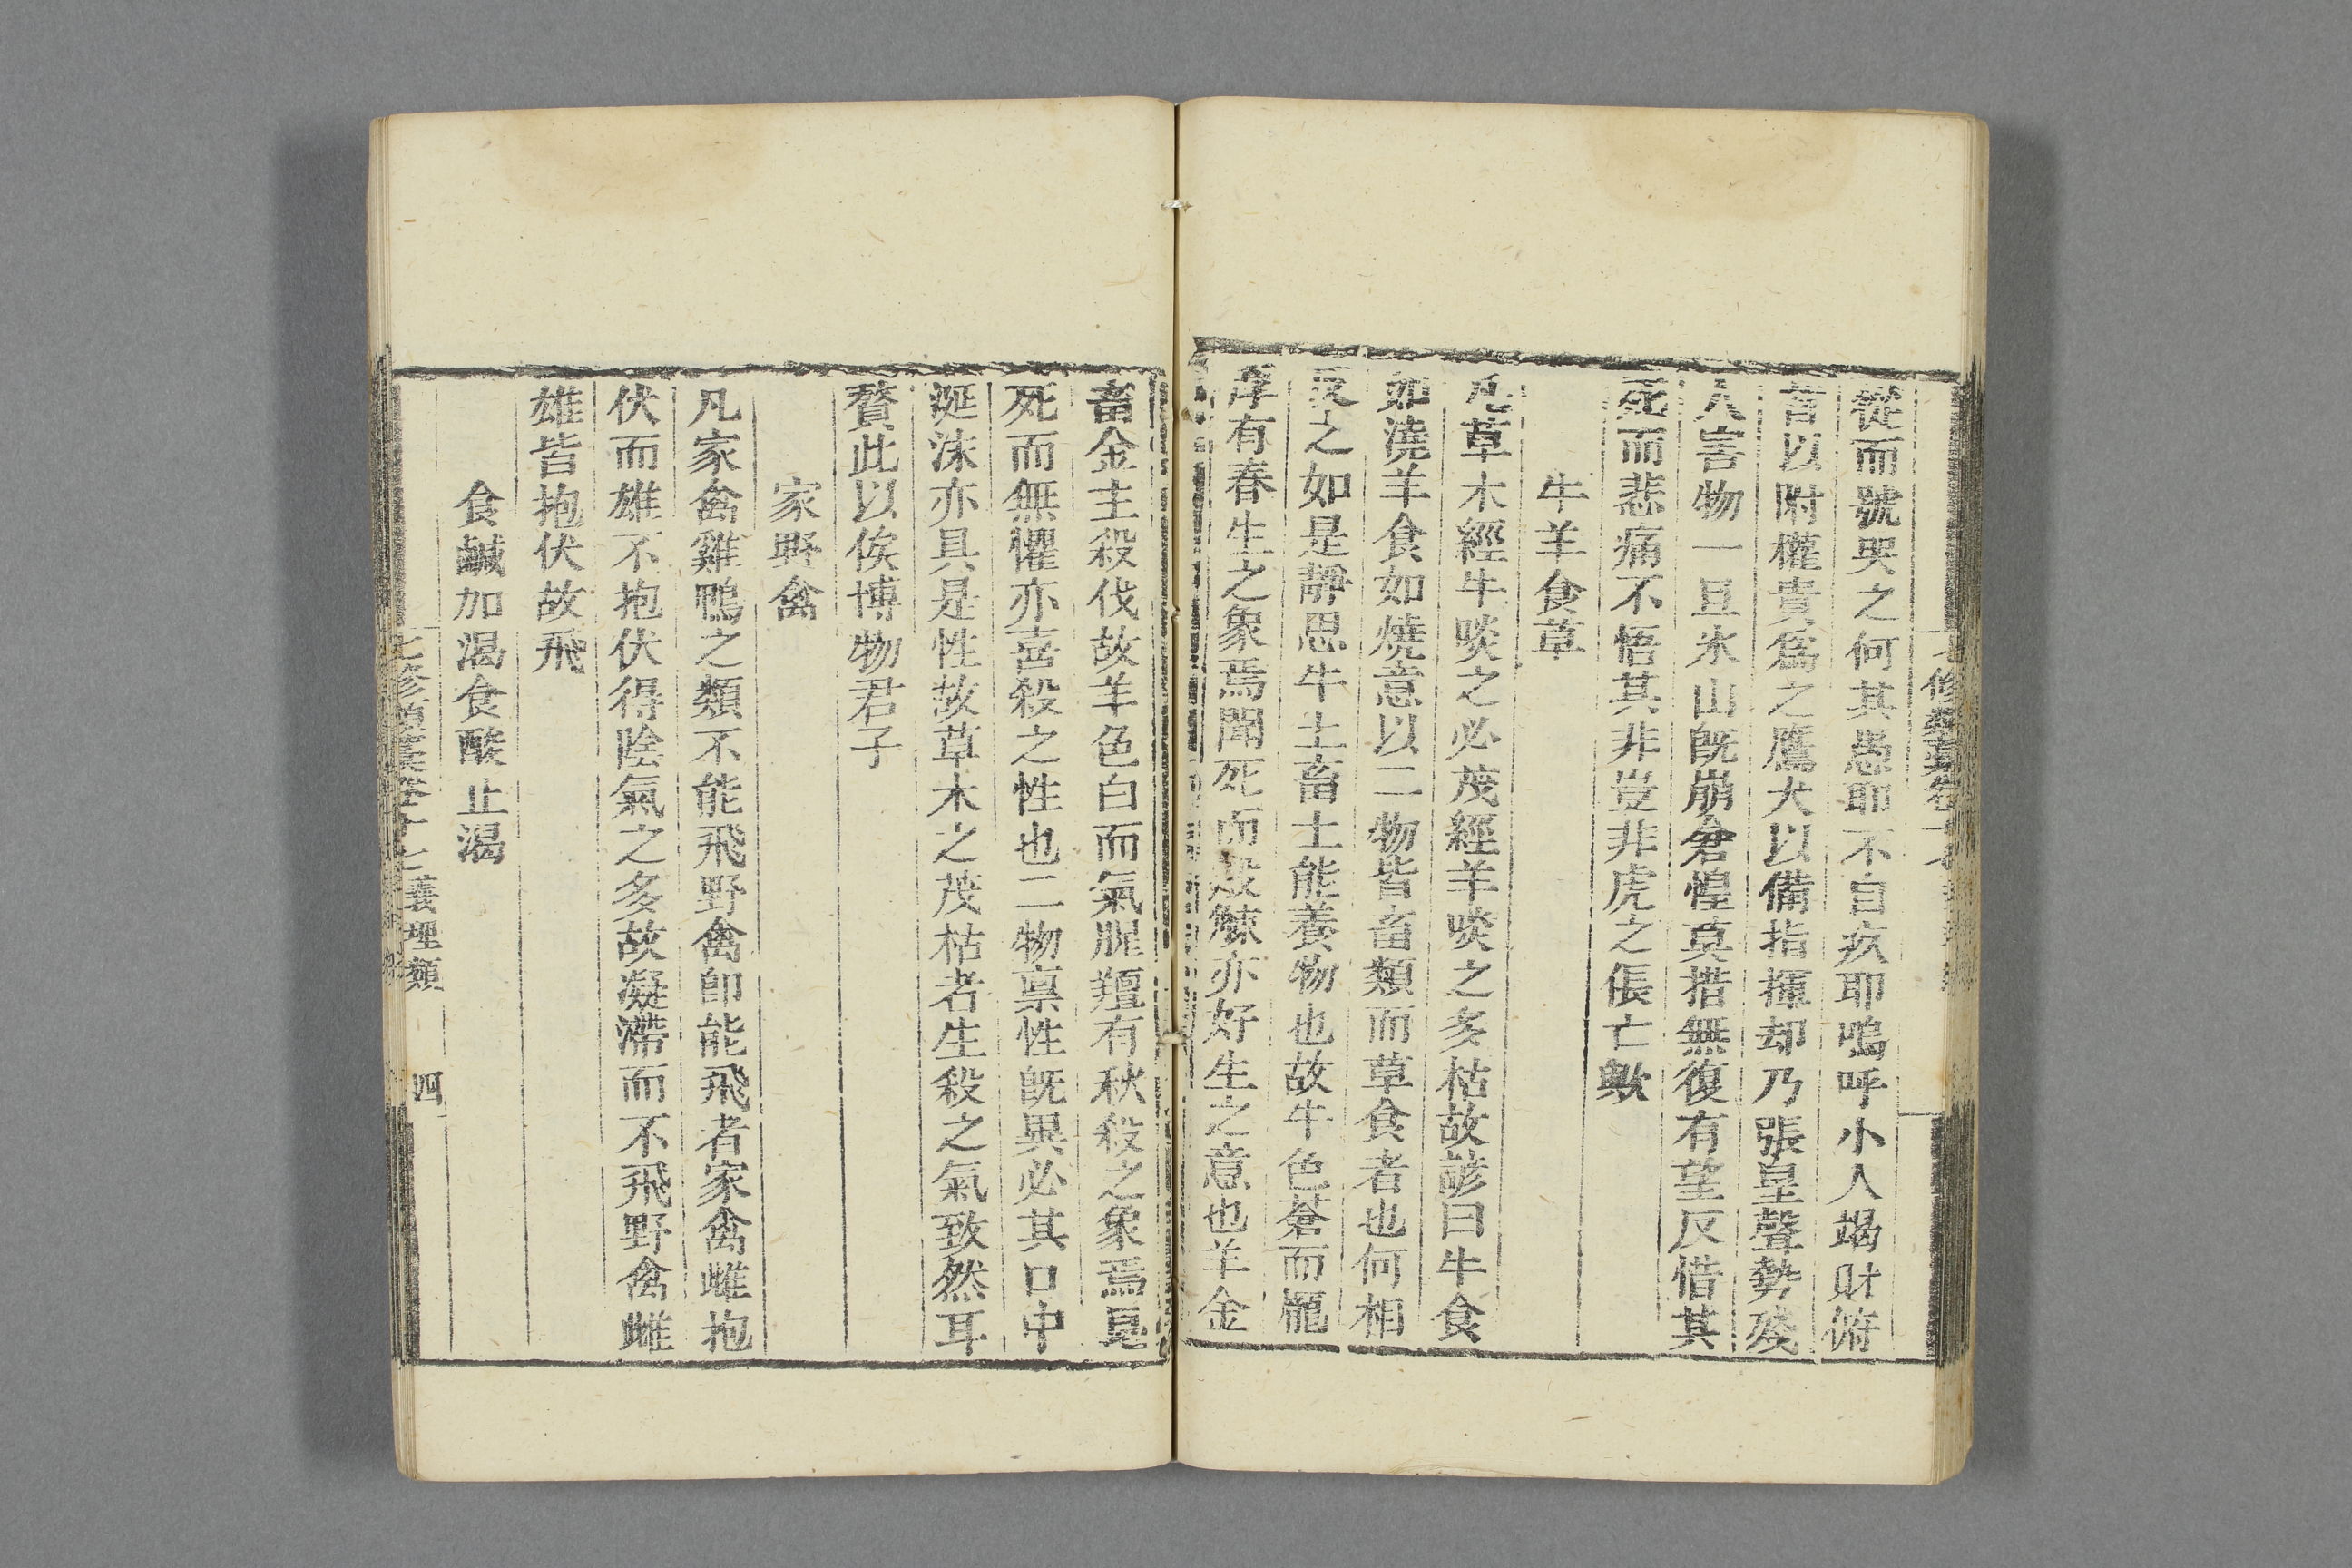 從而號哭之何其愚耶不自疚耶嗚呼小人竭財俯
言以附權貴爲之鷹犬以備指揮却乃張皇聲勢殘
人害物一旦氷山既崩倉惶莫措無復有望反惜其
死而悲痛不悟其非豈非虎之倀亡歟
牛羊食草
凡草木經牛啖之必茂經羊啖之多枯故諺曰牛食
如澆羊食如燒意以二物皆畜類而草食者也何相
反之如是靜思牛土畜土能養物也故牛色蒼而龎
厚有春生之象焉聞死而觳觫亦好生之意也羊金
畜金主殺伐故羊色白而氣腥羶有秋殺之象焉見
死而無懼亦喜殺之性也二物禀性既異必其口中
涎沫亦具是性故草木之茂枯者生殺之氣致然耳
贅此以俟博物君子
家野禽
凡家禽雞鴨之類不能飛野禽即能飛者家禽雌抱
伏而雄不抱伏得陰氣之多故凝滯而不飛野禽雌
雄皆抱伏故飛
食鹹加渴食酸止渴
七修類稾卷十七義理類 四